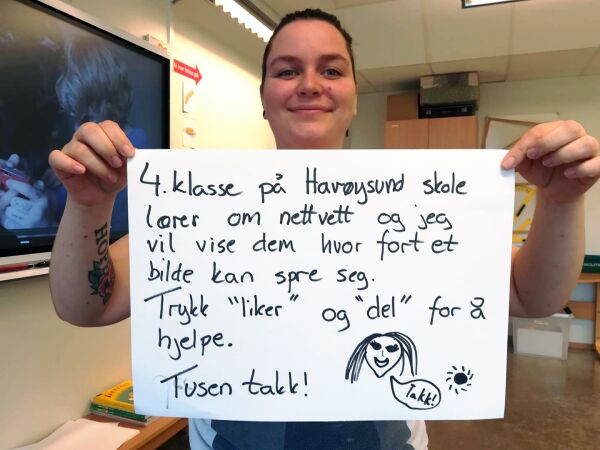 4. klasse på Havøysund skole
lærer om nettvett og jeg
vil vise dem hvor fort et
bilde kan spre seg.
Trykk "liker" og "del" for å
hjelpe.
Tusen takk!
Takk!